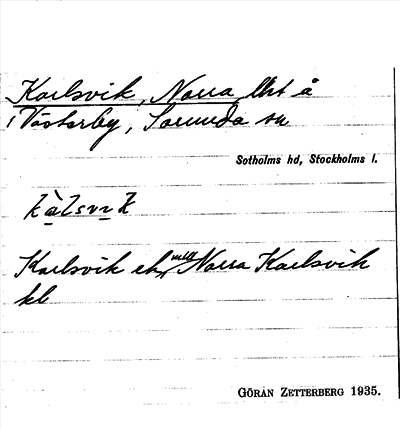 Karlsvik, Norra lht å
Västerby, Sorunda sn
Sotholms hd, Stockholms l.
kàlsvik
Karlsvik ek Norra Karlsvik
kb
GÖRAN ZETTERBERG 1935.